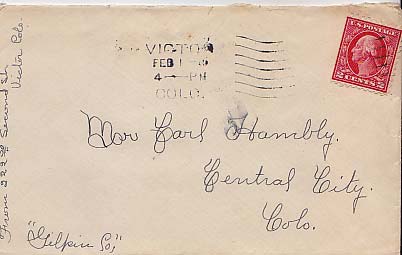 From 222 S Second St.
Victor Colo.
VICTO
FEB
4 - PM
COLO.
U.S. POSTAGE
2 CENTS 2
Mr Earl Hambly.
Central City.
Colo.
"Gilpin Co,"